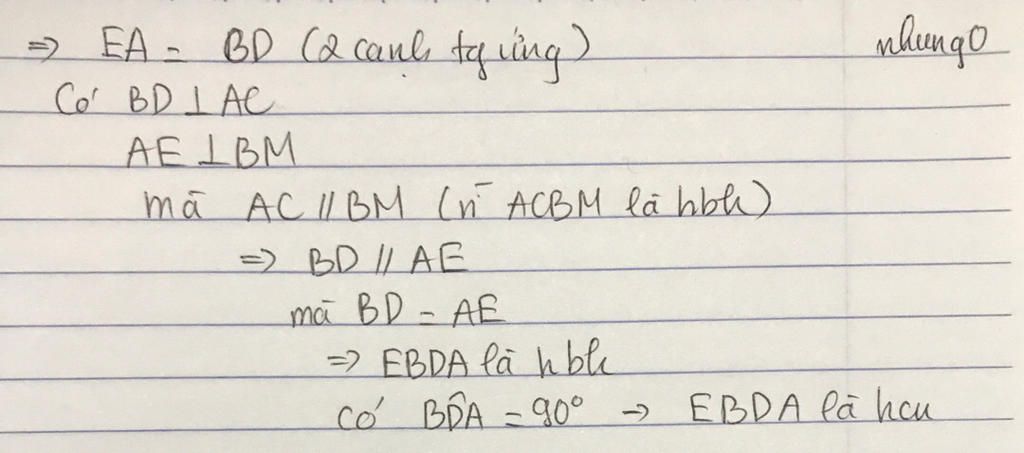 => EA = BD (2 cạnh tg ứng) nhung0
Có BD ⊥ AC
AE ⊥ BM
mà AC // BM (vì ACBM là hbh)
=> BD // AE
mà BD = AE
=> EBDA là hbh
có BD̂A = 90° → EBDA là hcn